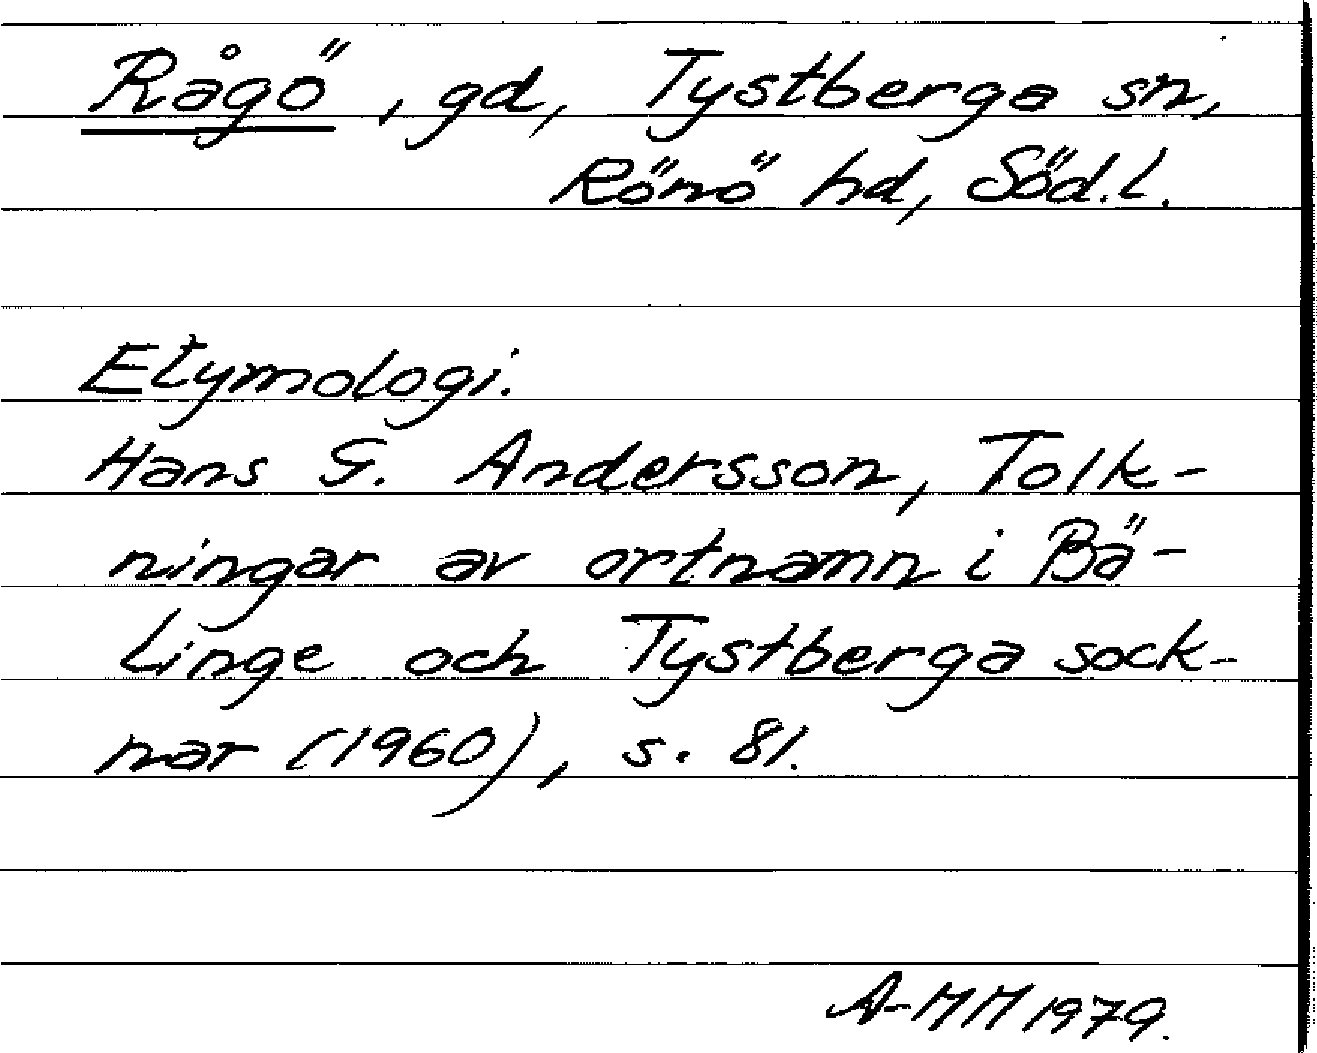 Rågö, gd, Tystberga sn,
Rönö hd, Söd.l.
Etymologi.
Hans G. Andersson, Tolk-
ningar av ortnamn i Bä-
linge och Tystberga sock-
nar (1960), s. 81.
A-MM 1979.